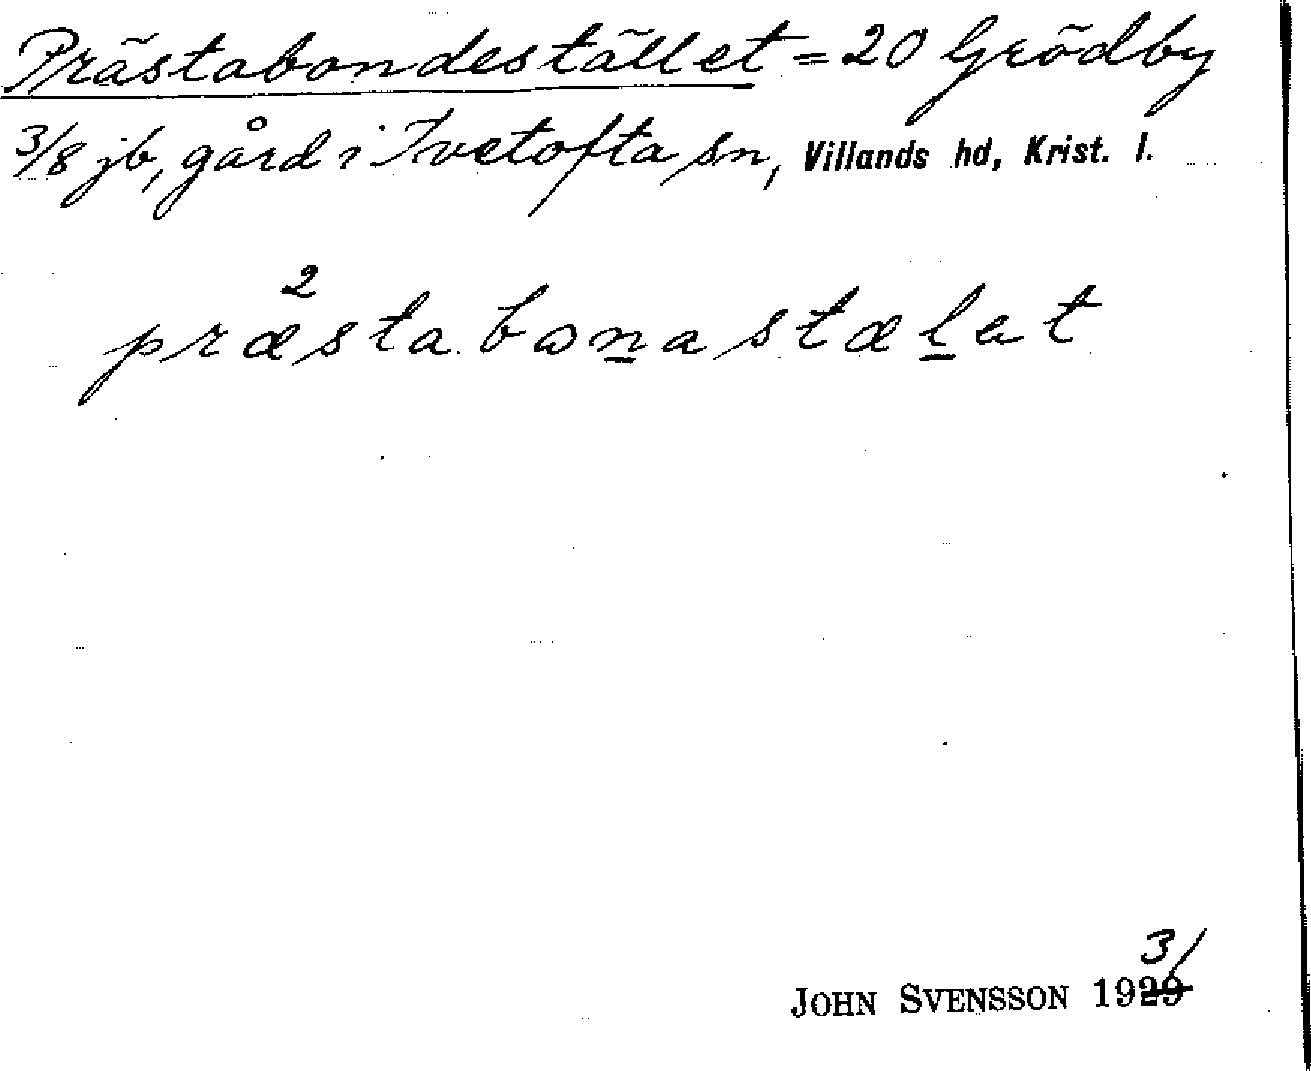 Prästabondestället = 20 Grödby
3/8 jb, gård i Ivetofta sn, Villands hd, Krist. l.
2
præstabonastælet
3/
JOHN SVENSSON 1929